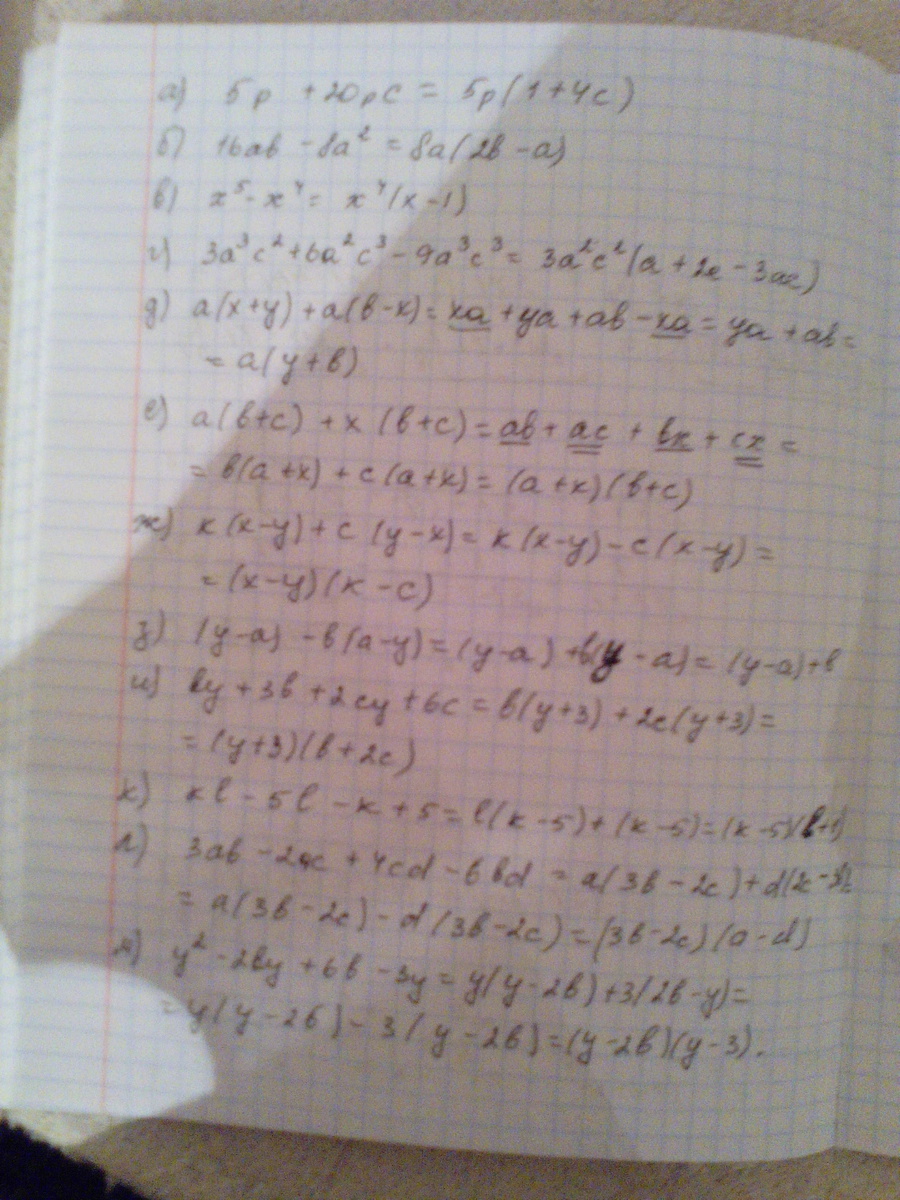 а) 5p + 20pc = 5p(1+4c)
б) 16ab - 8a² = 8a(2b - a)
в) x⁵ - x⁴ = x⁴(x - 1)
г) 3a³c² + 6a²c³ - 9a³c³ = 3a²c²(a + 2c - 3ac)
д) a(x+y) + a(b-x) = xa + ya + ab - xa = ya + ab =
= a(y+b)
е) a(b+c) + x(b+c) = ab + ac + bx + cx =
= b(a+x) + c(a+x) = (a+x)(b+c)
ж) k(x-y) + c(y-x) = k(x-y) - c(x-y) =
= (x-y)(k-c)
з) (y-a) - b(a-y) = (y-a) + b(y-a) = (y-a)+b
и) by + 3b + 2cy + 6c = b(y+3) + 2c(y+3) =
= (y+3)(b+2c)
к) kl - 5l - k + 5 = l(k-5) + (k-5) = (k-5)(l+1)
л) 3ab - 2ac + 4cd - 6bd = a(3b-2c) + d(2c-3b)=
= a(3b-2c) - d(3b-2c) = (3b-2c)(a-d)
м) y² - 2by + 6b - 3y = y(y-2b) + 3(2b-y) =
= y(y-2b) - 3(y-2b) = (y-2b)(y-3).